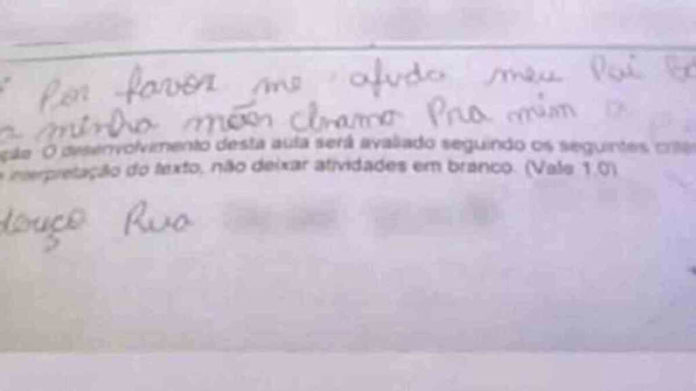 Por favor me ajuda meu Pai
minha mãe chama Pra mim a
O desenvolvimento desta aula será avaliado seguindo os seguintes
interpretação do texto, não deixar atividades em branco. (Vale 1,0)
Rua